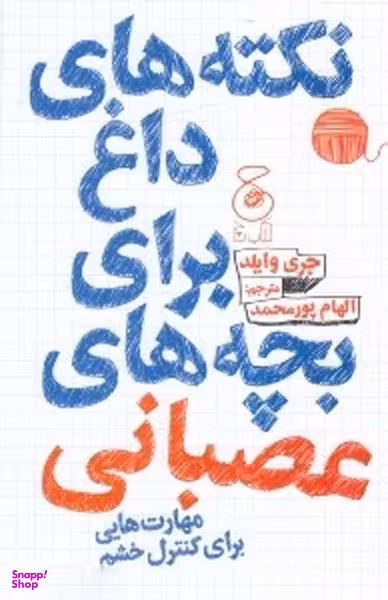 نکته‌های
داغ
برای
بچه‌های
عصبانی
جری وایلد
مترجم:
الهام پورمحمد
مهارت‌هایی
برای کنترل خشم
Snapp!
Shop